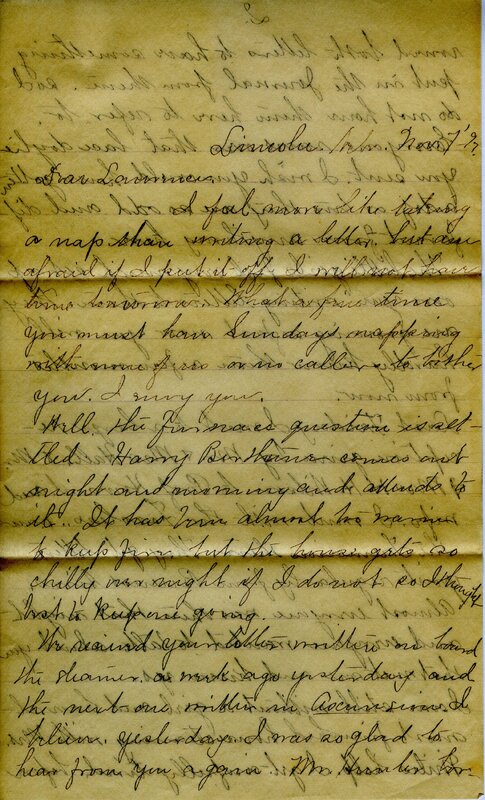 Lincoln, Nov. 7 '9
Dear Lawrence,
I feel more like taking
a nap than writing a letter, but am
afraid if I put it off I will not have
time tomorrow. What a fine time
you must have Sundays napping
with no fires or no callers to bother
you. I envy you.
Well the furnace question is set-
tled Harry comes out
night and morning and attends to
it. It has been almost too warm
to keep fire, but the house gets so
chilly over night if I do not so I thought
best to keep one going.
We received your letter written on board
the steamer a week ago yesterday and
the next one written in Ascension I
believe yesterday. I was so glad to
hear from you again. Mr.